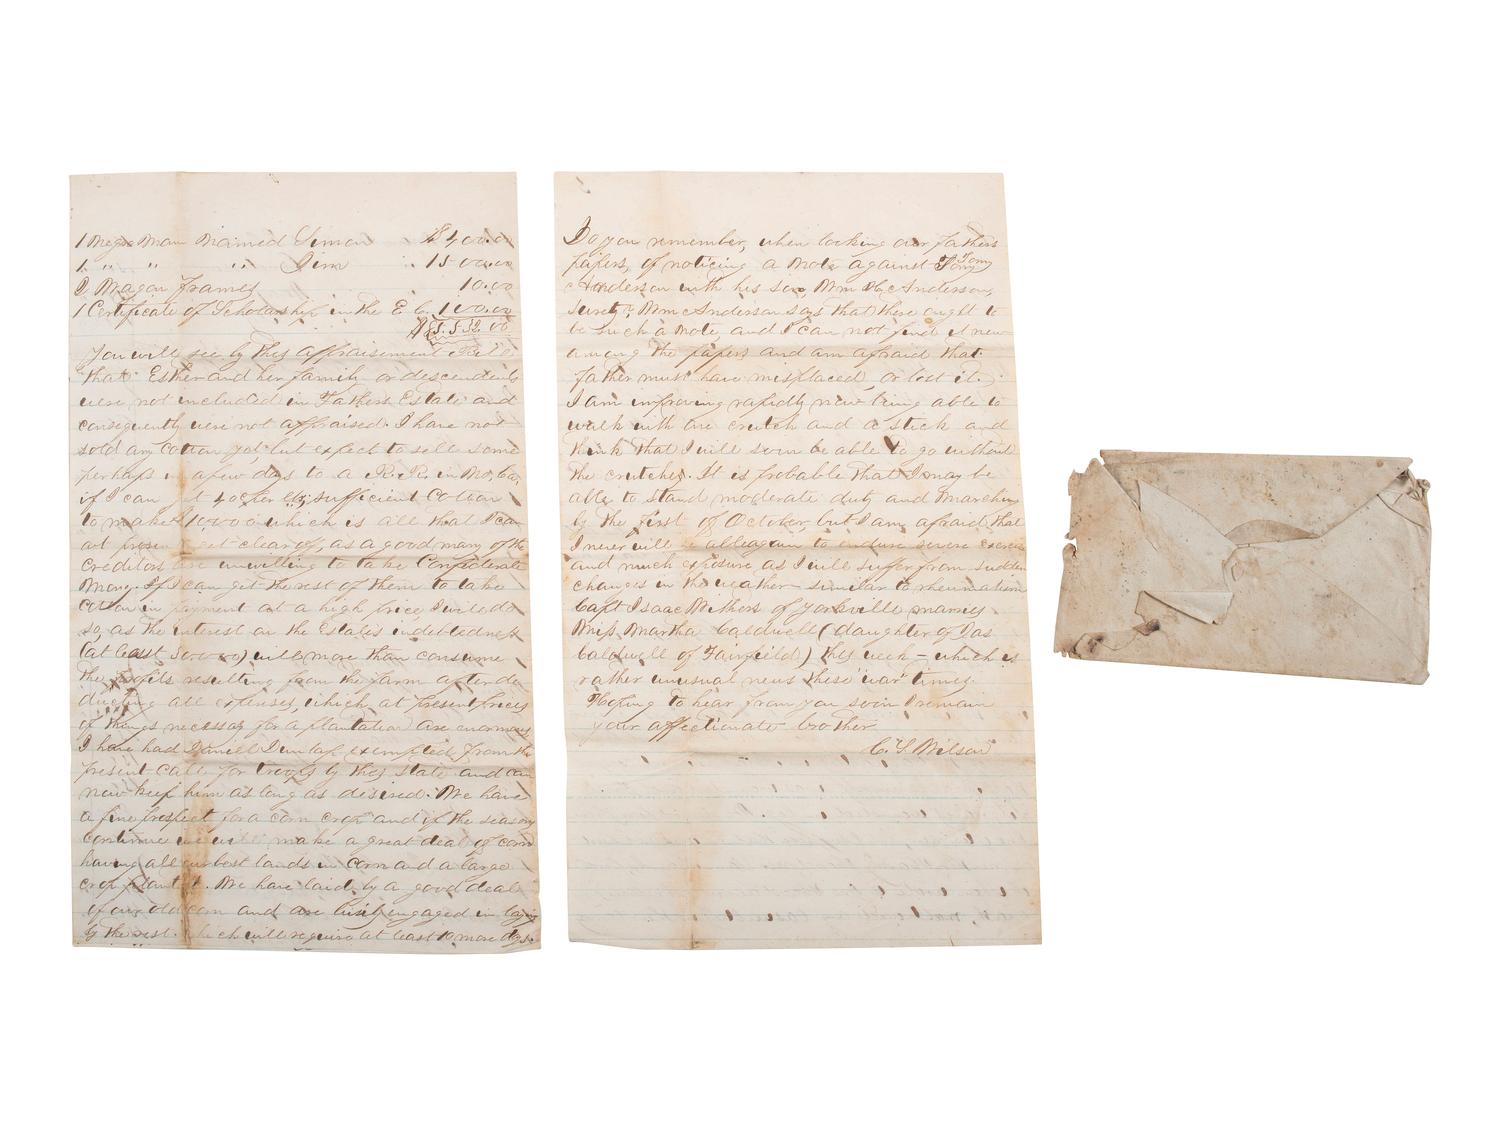 1 Negro Man Named Simon $400.00
1 " " " Jim " 1500.00
2 Wagon Frames 10.00
1 Certificate of Scholarship in the E. C. 100.00
You will see by this appraisement Bill
that Esther and her family or descendents
were not included in Fathers Estate and
consequently were not appraised. I have not
sold any Cotton yet but expect to sell some
perhaps in a few days to a R. R. in No. Ca,
if I can get 40 cts per lb; sufficient Cotton
to make $10000 which is all that I can
at present get clear of, as a good many of the
creditors are unwilling to take Confederate
Money. If I can get the rest of them to take
Cotton in payment at a high price, I will do
so, as the interest on the Estates indebtedness
(at least ) will more than consume
the profits resulting from the farm after de
ducting all expenses, which at present prices
of things necessary for a plantation are enormous
I have had Daniel Dunlap exempted from the
present call for troops by this State and can
now keep him as long as desired. We have
a fine prospect for a corn crop and if the seasons
continue we will make a great deal of corn
having all our best lands in corn and a large
crop planted. We have laid by a good deal
of our old corn and are busily engaged in laying
by the rest. which will require at least 10 more days.
Do you remember, when looking over Fathers
papers, of noticing a Note against Tomy Tomy
Anderson with his son, Wm Anderson,
Surety? Wm Anderson says that there ought to
be such a note, and I can not find it now
among the papers and am afraid that
father must have misplaced, or lost it.
I am improving rapidly now being able to
walk with one crutch and a stick and
think that I will soon be able to go without
the crutches. It is probable that I may be
able to stand moderate duty and marching
by the first of October, but I am afraid that
I never will be able again to endure severe exercise
and much exposure as I will suffer from sudden
changes in the weather similar to rheumatism
Capt Isaac Withers of Yorkville marries
Miss Martha Caldwell (daughter of Jas
Caldwell of Fairfield) this week - which is
rather unusual news these "war" times.
Hoping to hear from you soon I remain
your affectionate brother
C. S. Wilson